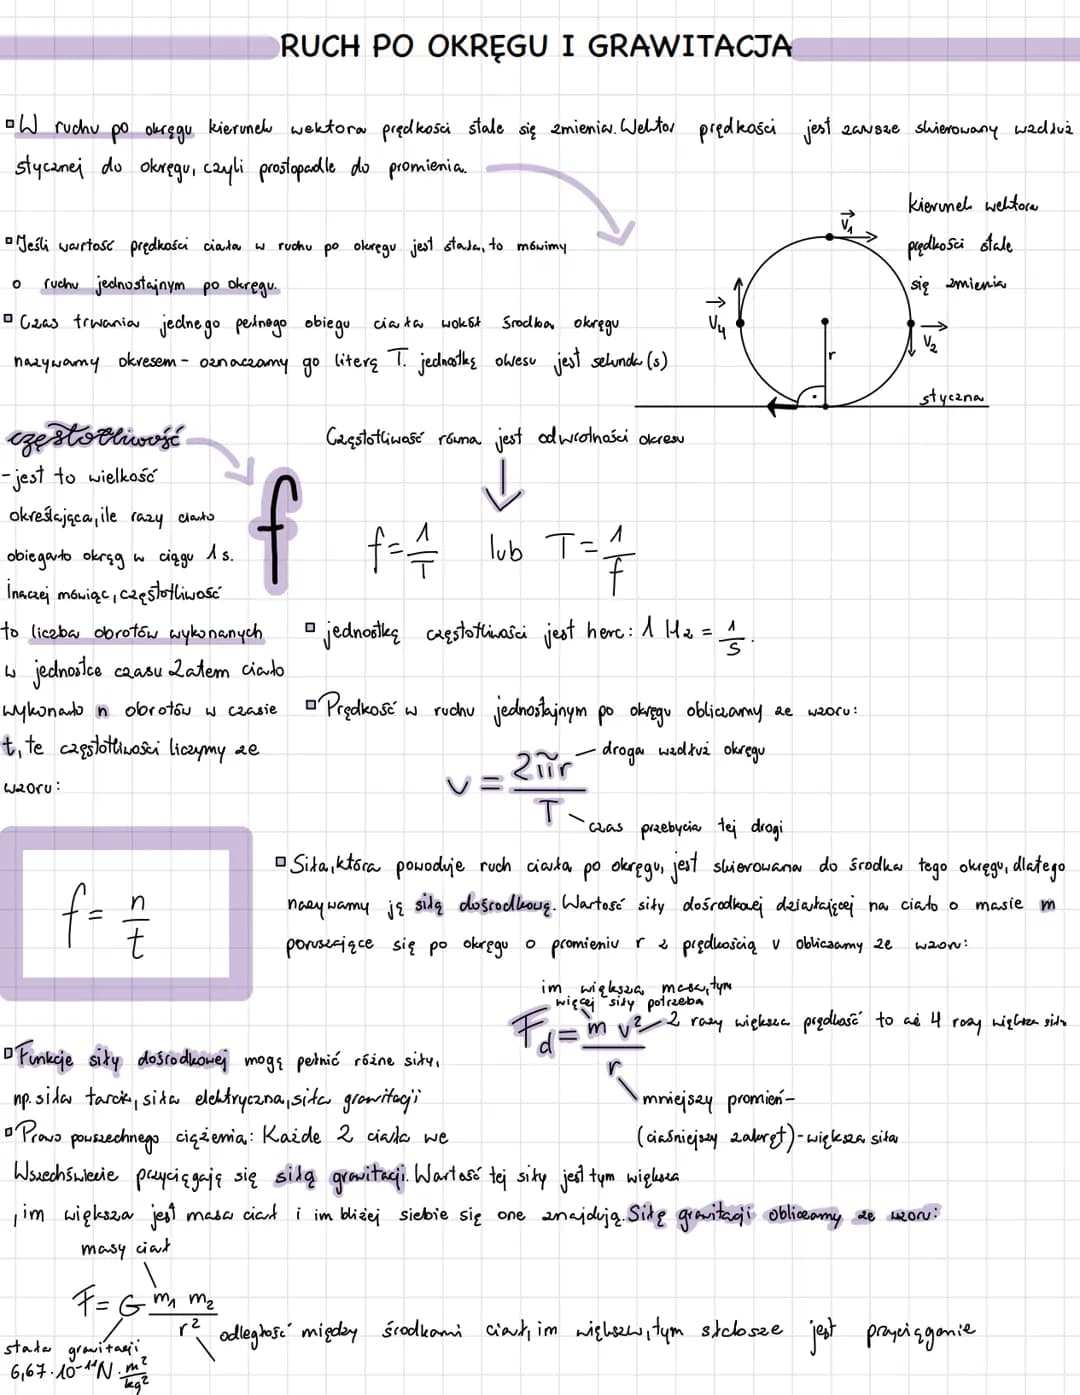 RUCH PO OKRĘGU I GRAWITACJA
▫W ruchu po okręgu kierunek wektora prędkości stale się zmienia. Wektor prędkości jest zawsze skierowany wzdłuż
stycznej do okręgu, czyli prostopadle do promienia.
kierunek wektora
prędkości stale
się zmienia
V₁
V₄
V₂
r
styczna
▫Jeśli wartość prędkości ciała w ruchu po okręgu jest stała, to mówimy
o ruchu jednostajnym po okręgu.
▫Czas trwania jednego pełnego obiegu ciała wokół środka okręgu
nazywamy okresem - oznaczamy go literą T. jednostką okresu jest sekunda (s)
częstotliwość
-jest to wielkość
określająca, ile razy ciało
obiegało okrąg w ciągu 1s.
Inaczej mówiąc, częstotliwość
to liczba obrotów wykonanych
w jednostce czasu Zatem ciało
wykonało n obrotów w czasie
t, te częstotliwości liczymy ze
wzoru:
f
f = n/t
Częstotliwość równa jest odwrotności okresu
f = 1/T lub T = 1/f
▫jednostką częstotliwości jest herc: 1 Hz = 1/s.
▫Prędkość w ruchu jednostajnym po okręgu obliczamy ze wzoru:
v = 2πr/T
droga wzdłuż okręgu
czas przebycia tej drogi
▫Siła, która powoduje ruch ciała po okręgu, jest skierowana do środka tego okręgu, dlatego
nazywamy ją siłą dośrodkową. Wartość siły dośrodkowej działającej na ciało o masie m
poruszające się po okręgu o promieniu r z prędkością v obliczamy ze wzoru:
im większa masa, tym
więcej siły potrzeba
Fd = m v²/r
2 razy większa prędkość to aż 4 razy większa siła
mniejszy promień-
(ciaśniejszy zakręt)-większa siła
▫Funkcje siły dośrodkowej mogą pełnić różne siły,
np. siła tarcia, siła elektryczna, siła grawitacji
▫Prawo powszechnego ciążenia: Każde 2 ciała we
Wszechświecie przyciągają się siłą grawitacji. Wartość tej siły jest tym większa
, im większa jest masa ciał i im bliżej siebie się one znajdują. Siłę grawitacji obliczamy ze wzoru:
masy ciał
F = G m₁ m₂/r²
odległość między środkami ciał, im większa, tym słabsze jest przyciąganie
stała grawitacji
6,67·10⁻¹¹N·m²/kg²